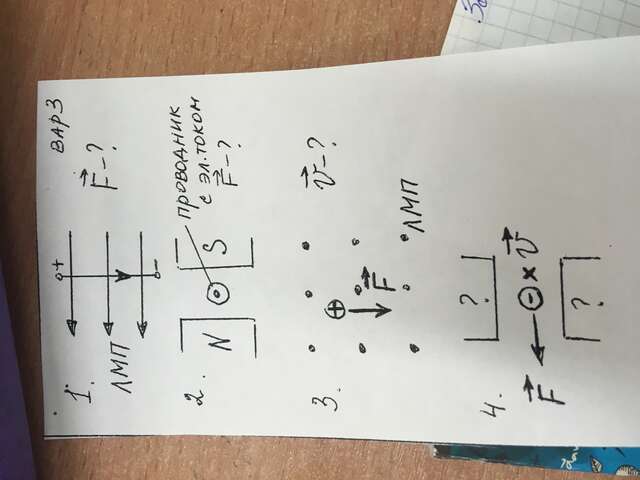 ВАР 3
1.
+
-
ЛМП
F - ?
2.
N
S
ПРОВОДНИК
С ЭЛ. ТОКОМ
F - ?
3.
+
F
v - ?
ЛМП
4.
?
F
-
× v
?